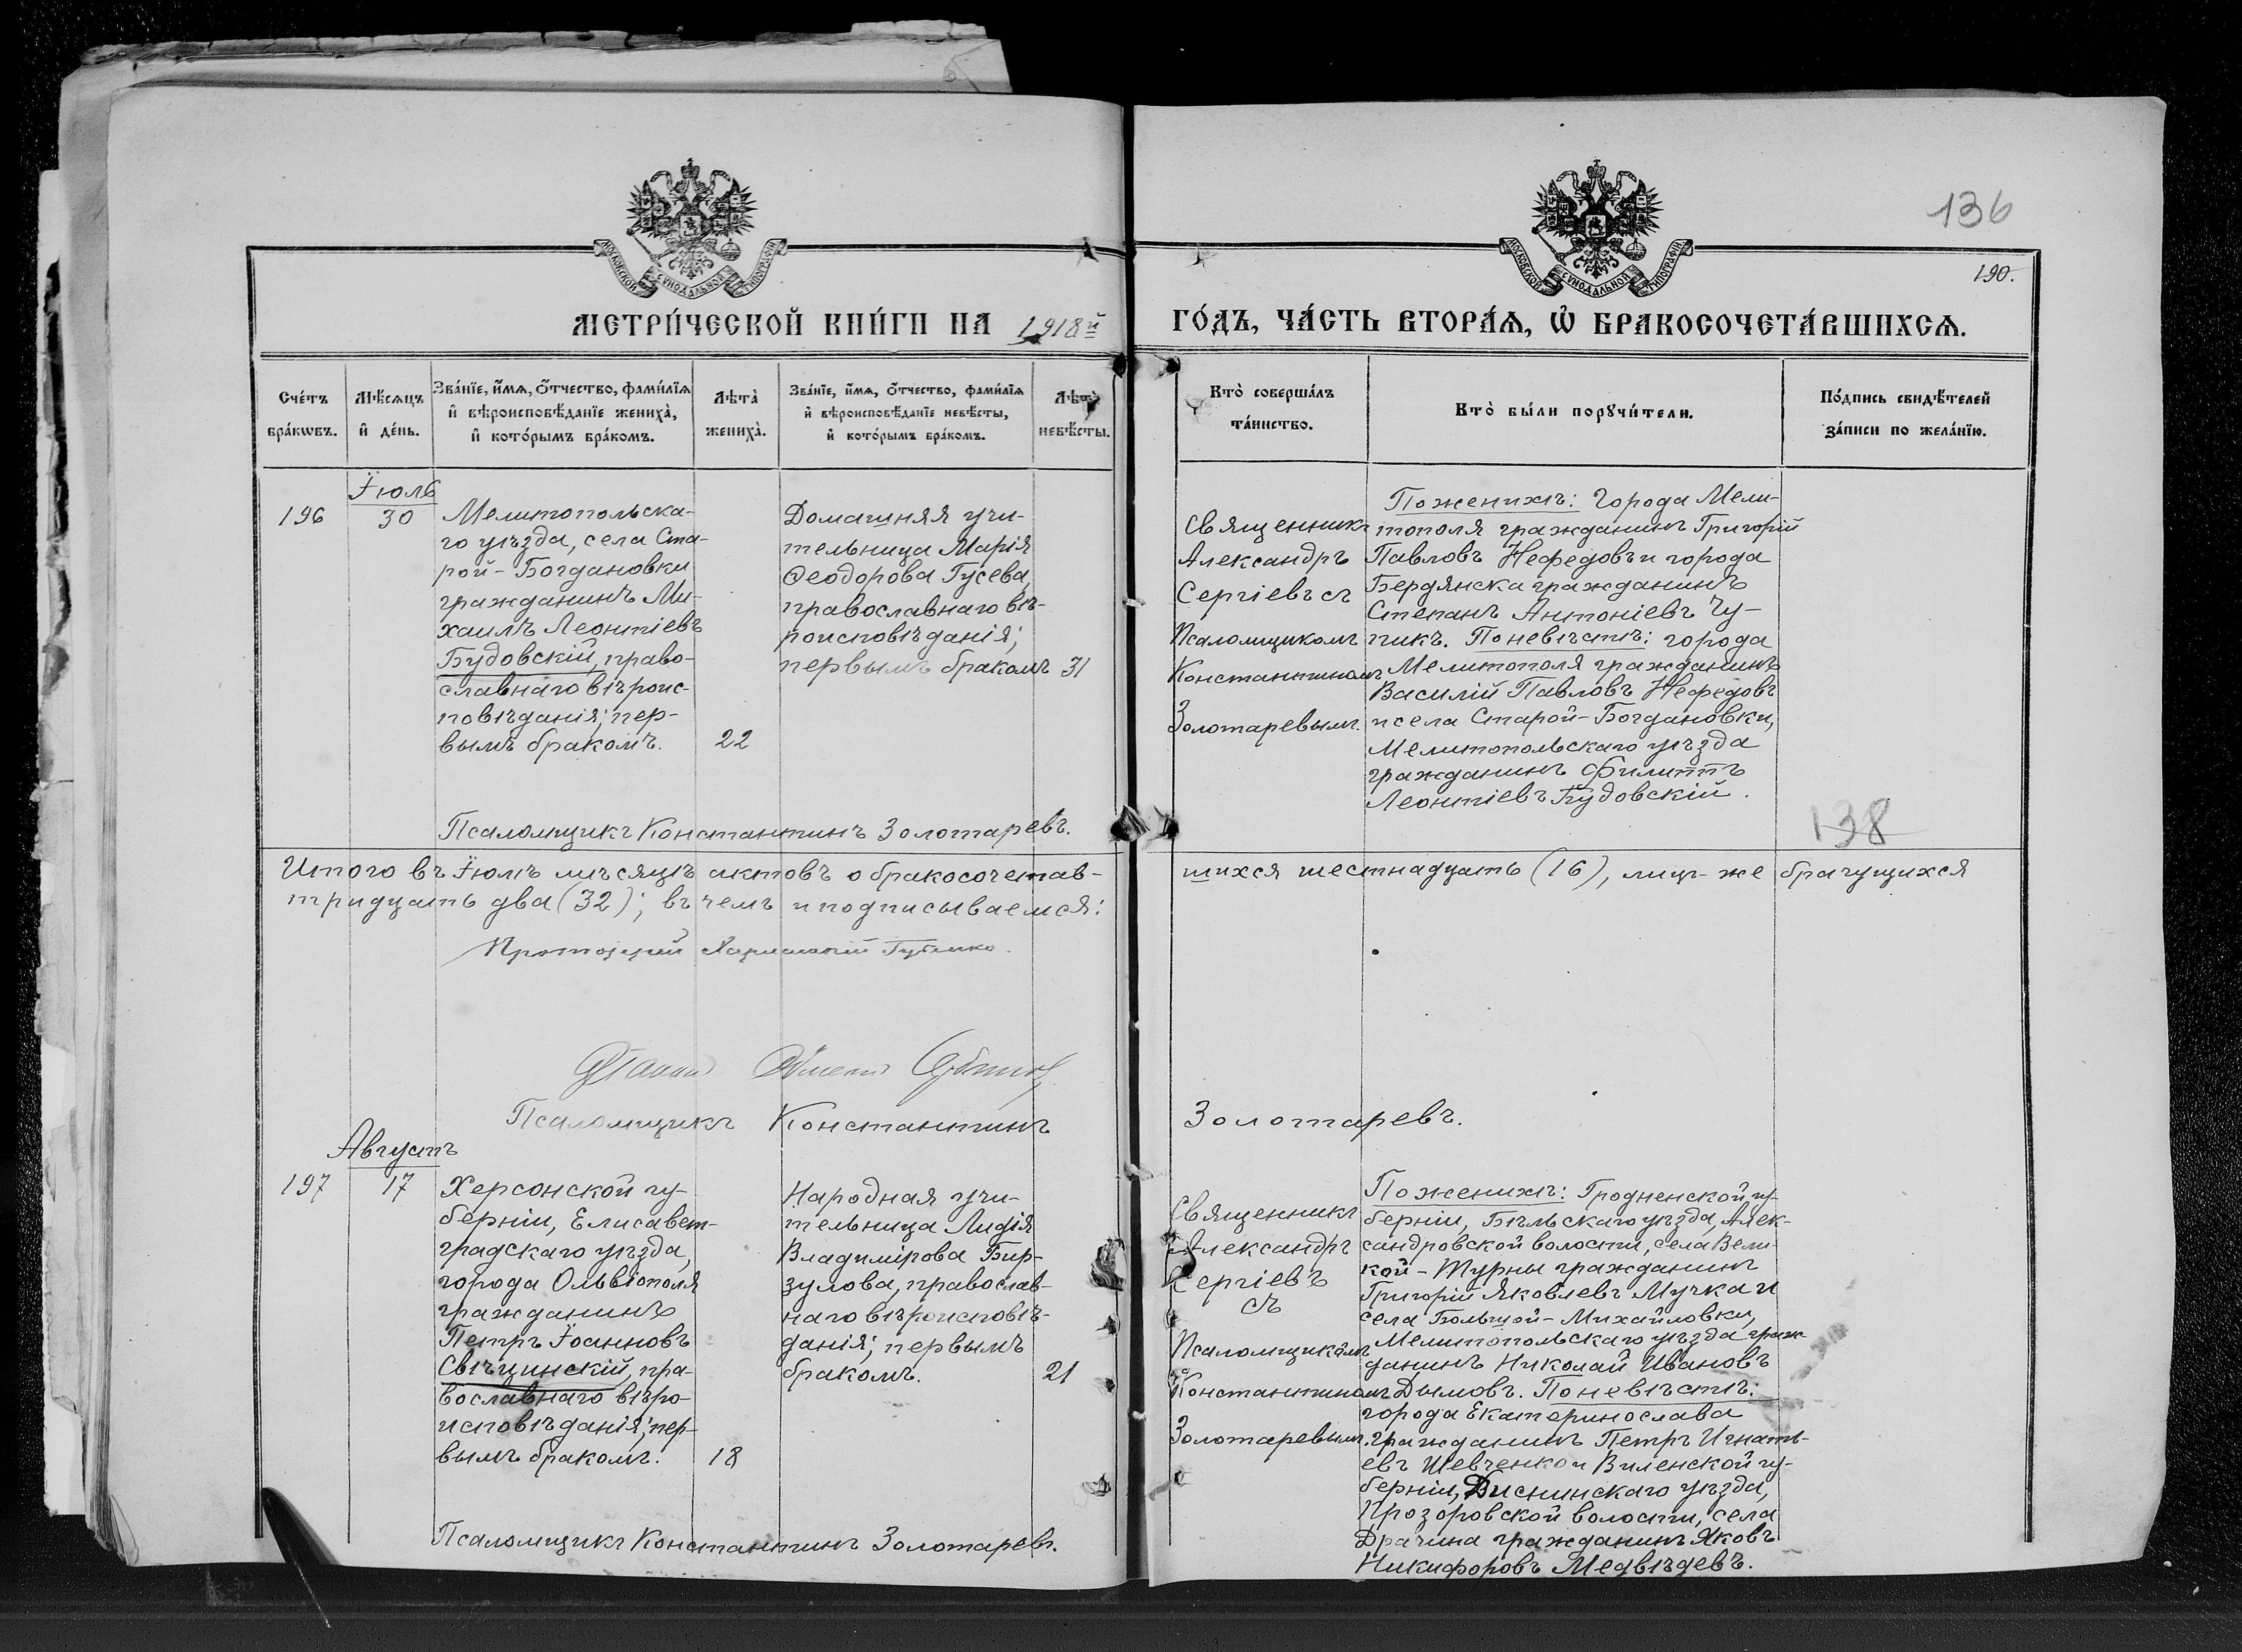 136
190.
МОСКОВСКОЙ СѴНОДАЛЬНОЙ ТИПОГРАФІИ
МОСКОВСКОЙ СѴНОДАЛЬНОЙ ТИПОГРАФІИ
МЕТРИ́ЧЕСКОЙ КНИ́ГИ НА 1918й ГО́ДЪ, ЧА́СТЬ ВТОРА́Ѧ, Ѡ҆ БРАКОСОЧЕТА́ВШИХСѦ.
Сче́тъ
бра́кѡвъ.
Мѣ́сѧцъ
и҆ де́нь.
Зва́нїе, и҆́мѧ, ѻ҆́тчество, фами́лїѧ
и҆ вѣроисповѣ́данїе жениха̀,
и҆ кото́рымъ бра́комъ.
Лѣта̀
жениха̀.
Зва́нїе, и҆́мѧ, ѻ҆́тчество, фами́лїѧ
и҆ вѣроисповѣ́данїе невѣ́сты,
и҆ кото́рымъ бра́комъ.
Лѣта̀
невѣ́сты.
Кто̀ соверша́лъ
та́инство.
Кто̀ бы́ли порꙋчи́тели.
По́дпись свидѣ́телей
за́писи по жела́нїю.
Іюль
196
30
Мелитопольска-
го уѣзда, села Ста-
рой-Богдановки
гражданинъ Ми-
хаилъ Леонтіевъ
Будовскій, право-
славнаго вѣроис-
повѣданія; пер-
вымъ бракомъ.
22
Домашняя учи-
тельница Марія
Ѳеодорова Гусева,
православнаго вѣ-
роисповѣданія;
первымъ бракомъ
31
Священникъ
Александръ
Сергіевъ съ
Псаломщикомъ
Константиномъ
Золотаревымъ.
По женихѣ: Города Мели-
тополя гражданинъ Григорій
Павловъ Нефедовъ и города
Бердянска гражданинъ
Степанъ Антоніевъ Чу-
пикъ. По невѣстѣ: города
Мелитополя гражданинъ
Василій Павловъ Нефедовъ
и села Старой-Богдановки,
Мелитопольскаго уѣзда
гражданинъ Филиппъ
Леонтіевъ Будовскій.
Псаломщикъ Константинъ Золотаревъ.
138
Итого въ Іюлѣ мѣсяцѣ актовъ о бракосочетав-
шихся шестнадцать (16), лицъ-же брачущихся
тридцать два (32); въ чемъ и подписываемся:
Протоіерей
Псаломщикъ Константинъ Золотаревъ.
Августъ
197
17
Херсонской гу-
берніи, Елисавет-
градскаго уѣзда,
города Ольвіополя
гражданинъ
Петръ Іоанновъ
Свѣцинскій, пра-
вославнаго вѣро-
исповѣданія; пер-
вымъ бракомъ.
18
Народная учи-
тельница Лидія
Владимірова Бир-
зулова, православ-
наго вѣроисповѣ-
данія; первымъ
бракомъ.
21
Священникъ
Александръ
Сергіевъ
съ
Псаломщикомъ
Константиномъ
Золотаревымъ.
По женихѣ: Гродненской гу-
берніи, Бѣльскаго уѣзда, Алек-
сандровской волости, села Вели-
кой-Турны гражданинъ
Григорій Яковлевъ Мучка и
села Большой-Михайловки,
Мелитопольскаго уѣзда граж-
данинъ Николай Ивановъ
Дымовъ. По невѣстѣ:
города Екатеринослава
гражданинъ Петръ Игнать-
евъ Шевченко и Виленской гу-
берніи, Диснинскаго уѣзда,
Прозоровской волости, села
Драчина гражданинъ Яковъ
Никифоровъ Медвѣдевъ.
Псаломщикъ Константинъ Золотаревъ.